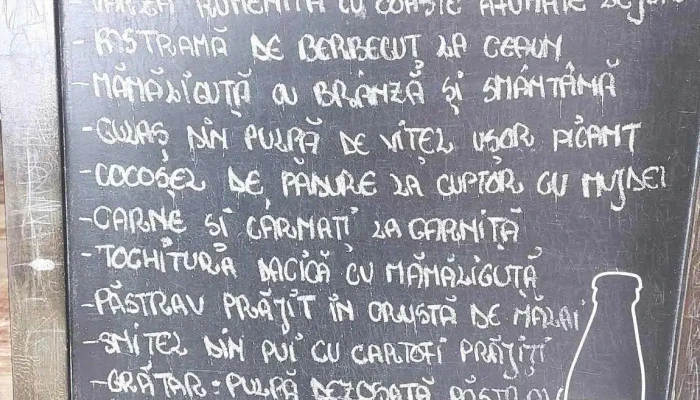 - VARZĂ RUMENITĂ CU COASTE AFUMATE DE
- PASTRAMĂ DE BERBECUȚ LA CEAUN
- MĂMĂLIGUȚĂ CU BRÂNZĂ ȘI SMÂNTÂNĂ
- GULAȘ DIN PULPĂ DE VIȚEL UȘOR PICANT
- COCOȘEL DE PĂDURE LA CUPTOR CU MUJDEI
- CARNE ȘI CÂRNAȚI LA GARNIȚĂ
- TOCHITURĂ DACICĂ CU MĂMĂLIGUȚĂ
- PĂSTRĂV PRĂJIT ÎN CRUSTĂ DE MĂLAI
- ȘNIȚEL DIN PUI CU CARTOFI PRĂJIȚI
- GRĂTAR: PULPĂ DEZOSATĂ PĂSTRĂV